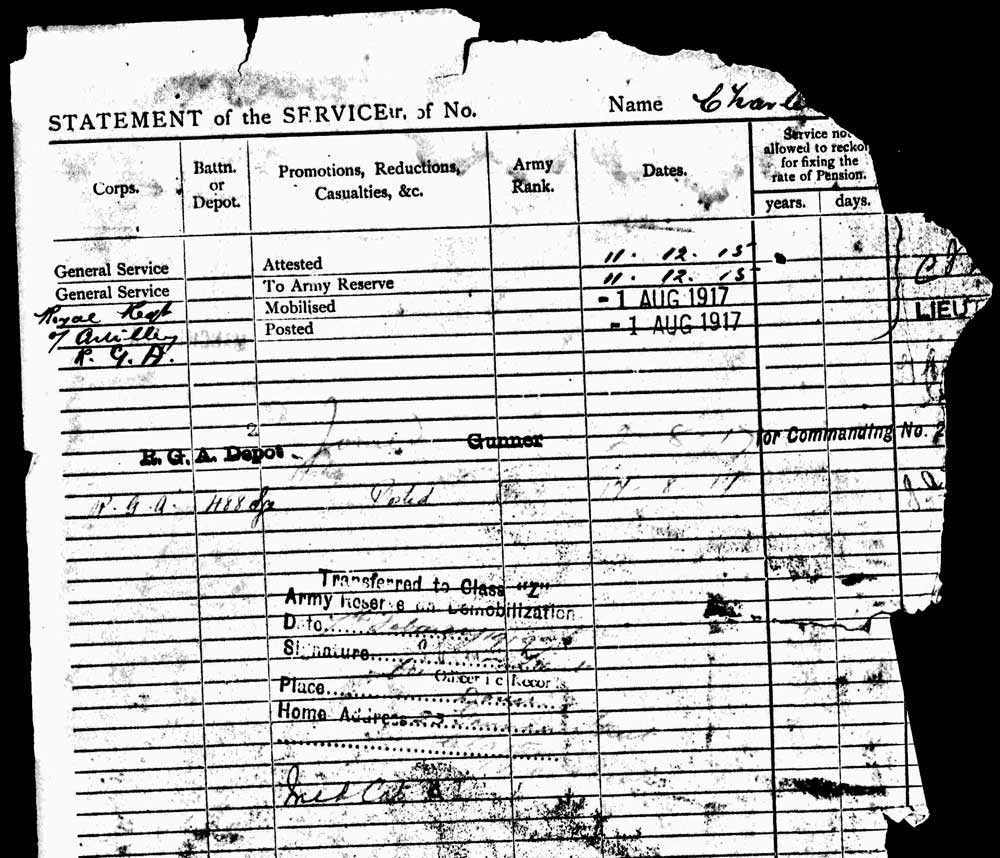 STATEMENT of the SERVICE of No. Name Charle
Corps.
Battn. or Depot.
Promotions, Reductions, Casualties, &c.
Army Rank.
Dates.
Service not allowed to reckon for fixing the rate of Pension.
years. days.
General Service Attested 11. 12. 15
General Service To Army Reserve 11. 12. 15
Royal Regt Mobilised - 1 AUG 1917
of Artillery Posted - 1 AUG 1917
R. G. A.
LIEUT
2
R. G. A. Depot. Joined Gunner 2 8 17 for Commanding No. 2
R. G. A. 488 Posted 17 8 17
Transferred to Class "Z"
Army Reserve on Demobilization
Date
Signature
Officer i/c Records
Place
Home Address
Med Cat A